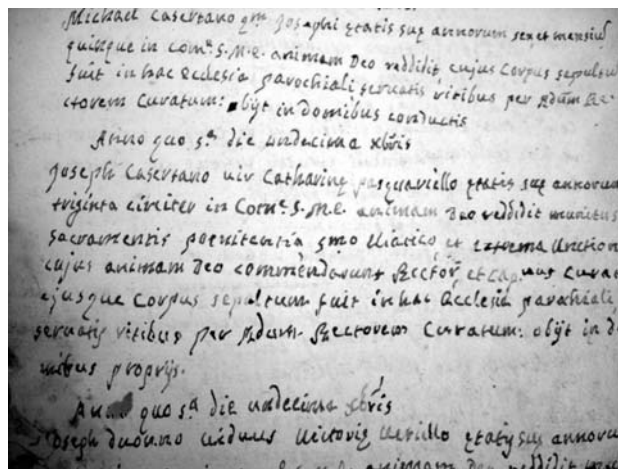 Michael Casertano qm Josephi ętatis suę annorum sex et mensiu
quinque in Come. S. M. E. animam Deo reddidit cujus Corpus sepultu
fuit in hac Ecclesia parochiali servatis ritibus per Adum Re-
ctorem Curatum: obijt in domibus conductis
Anno quo sa. die undecima xbris
Joseph Casertano vir Catharinę Pasquariello ętatis suę annorum
triginta circiter in Come. S. M. E. animam Deo reddidit munitus
sacramentis poenitentia smo Viatico, et extrema Unction
cujus animam Deo commendarunt Rector et Curat
ejusque Corpus sepultum fuit in hac Ecclesia parochiali,
servatis ritibus per Adum. Rectorem Curatum: obijt in do
mibus proprijs.
Anno quo sa die undecima xbris
Joseph viduus Victorię ętatis suę annoru
animam Deo reddidit